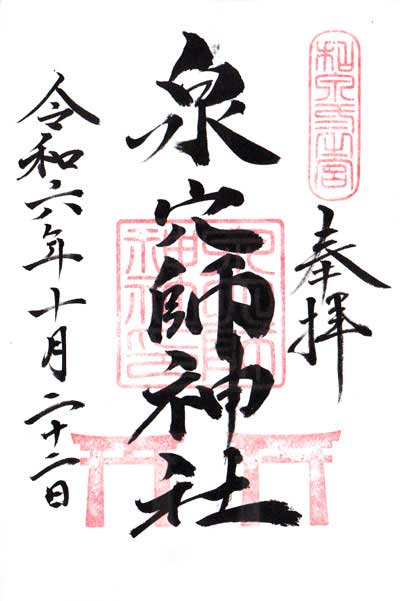 奉拝
泉穴師神社
令和六年十月二十二日